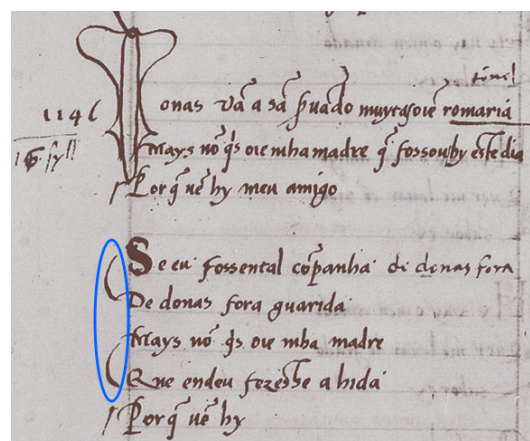 tonel
onas vã a sã ſuado muytas oie romaria
1146
Mays nõ q̃s oie mha madre q̃ fossou hy este dia
Porq̃ uẽ hy meu amigo
Se eu fossental cõpanha de donas fora
De donas fora guarida
Mays nõ q̃s oie mha madre
Que endeu fezesse a hida
Porq̃ uẽ hy